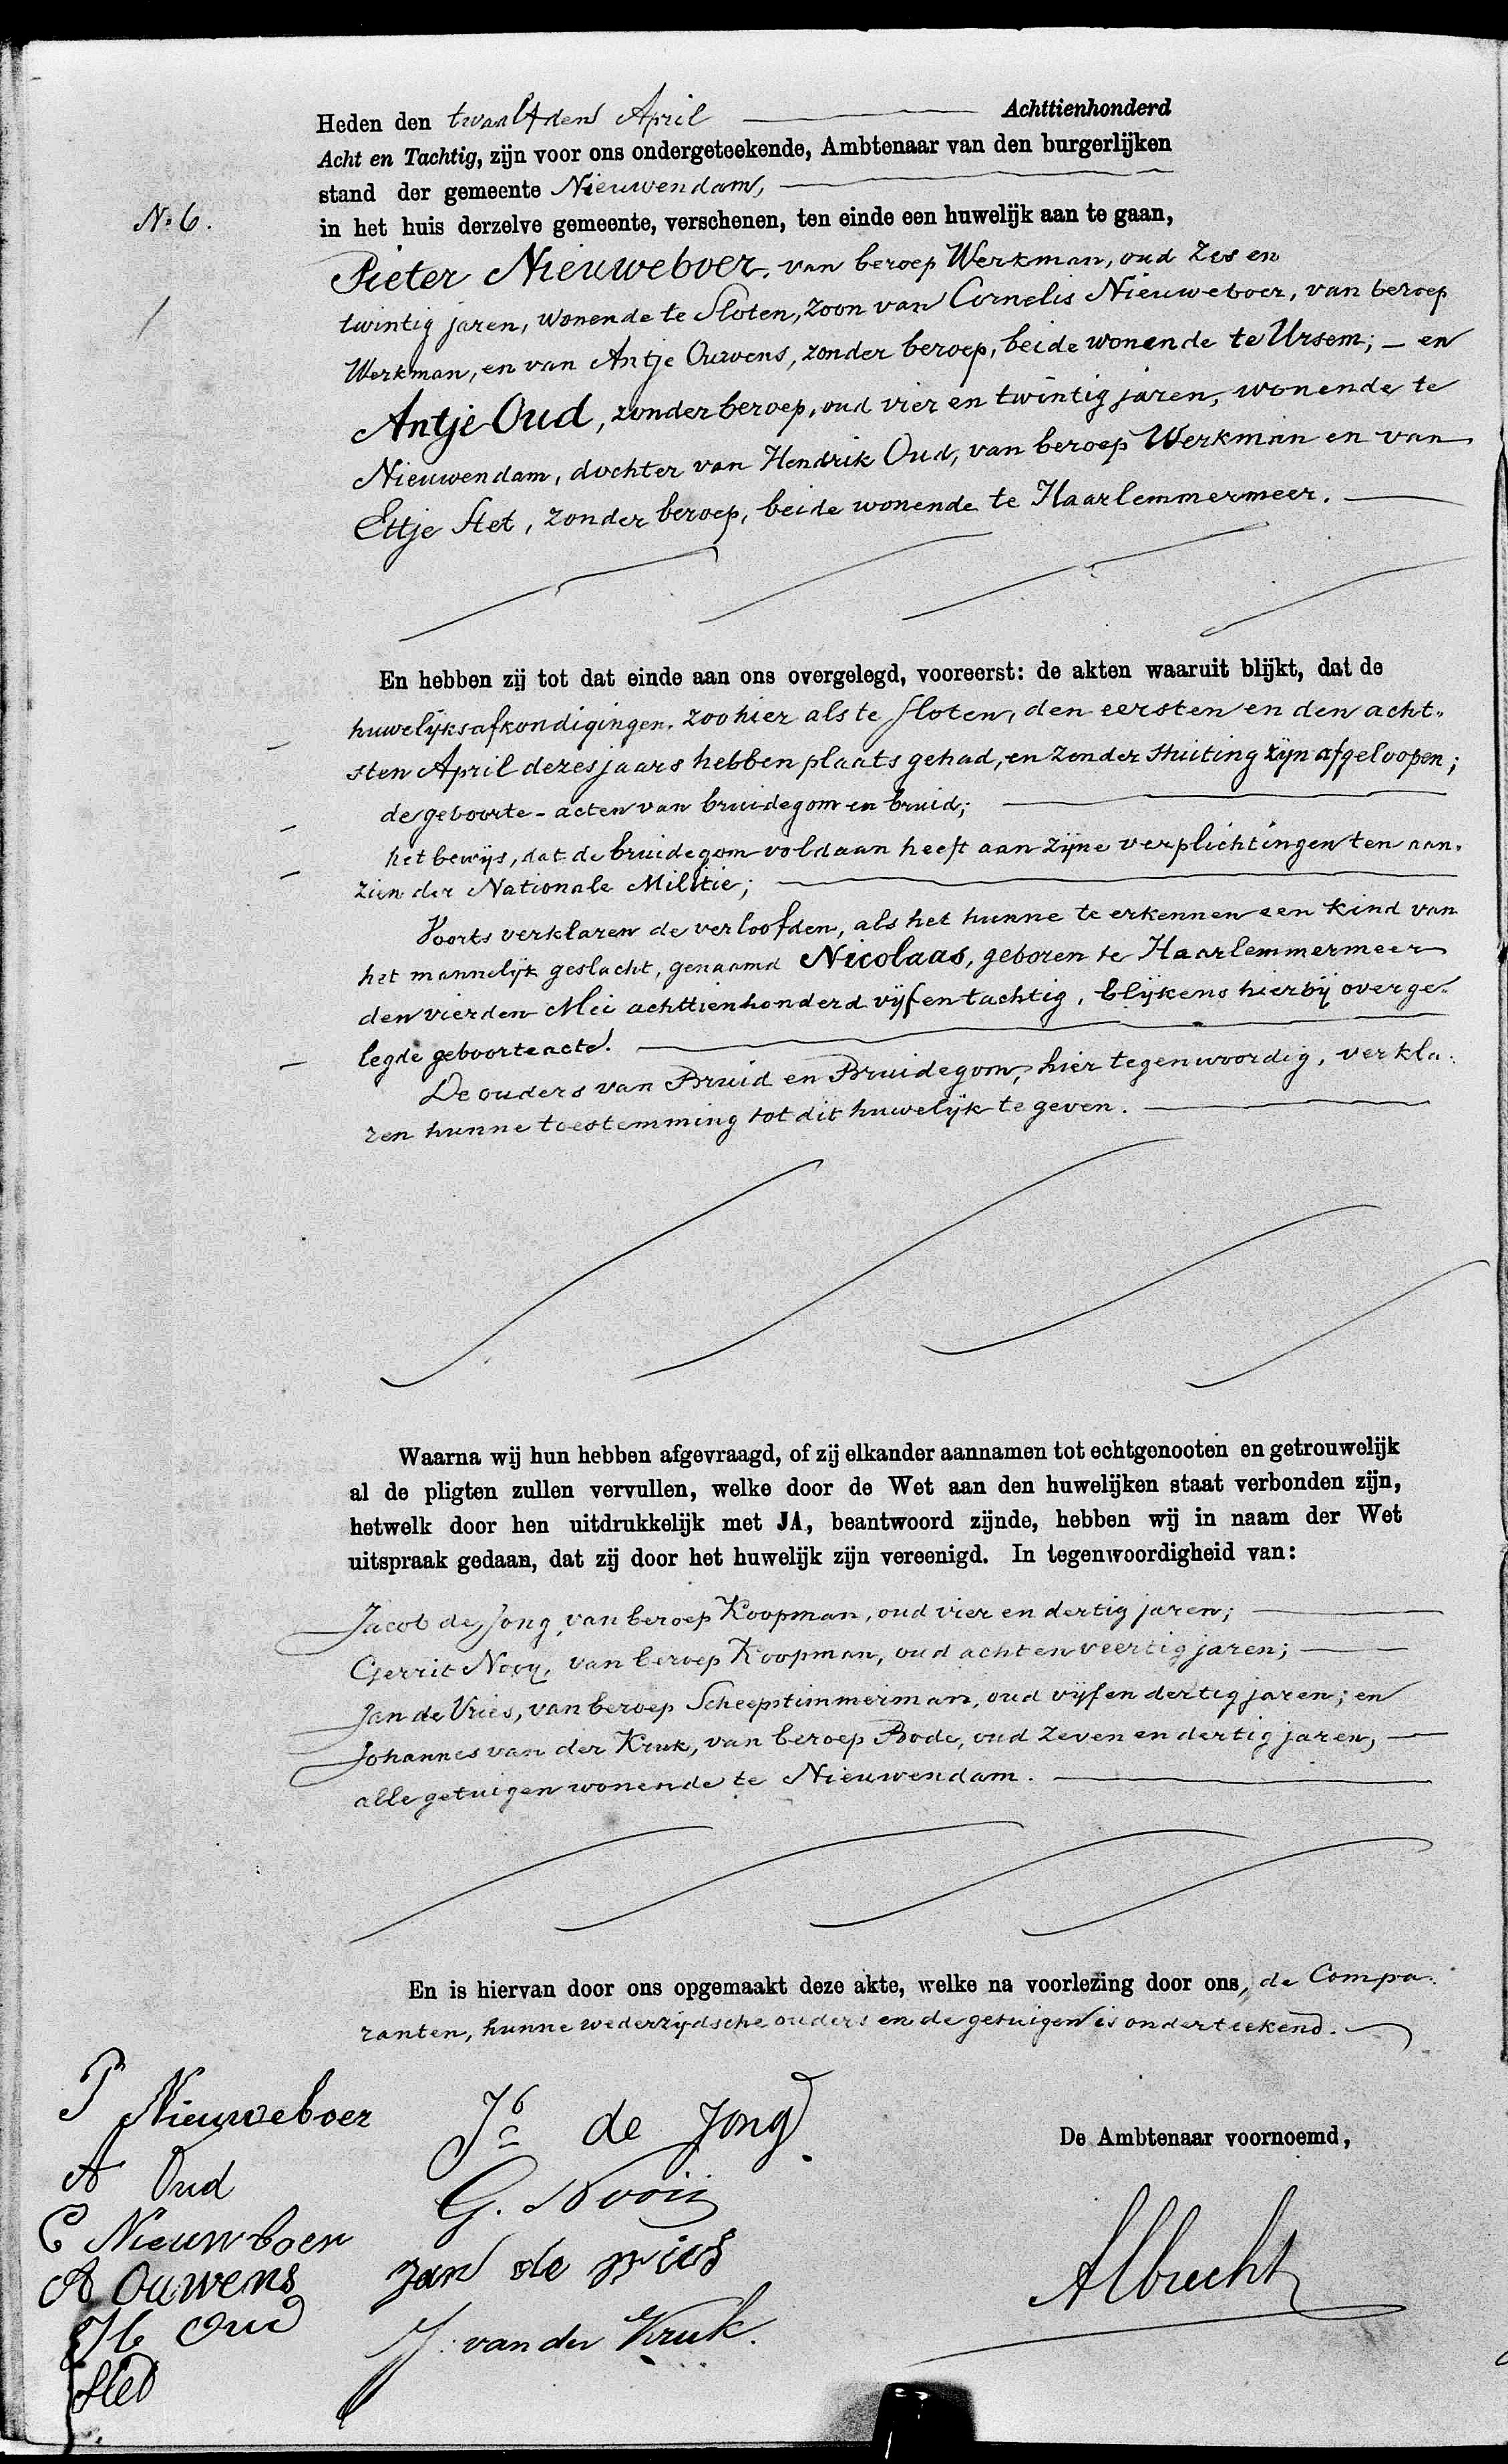 Heden den twaalfden April Achttienhonderd
Acht en Tachtig, zijn voor ons ondergeteekende, Ambtenaar van den burgerlijken
stand der gemeente Nieuwendam,
No 6.
in het huis derzelve gemeente, verschenen, ten einde een huwelijk aan te gaan,
Pieter Nieuweboer, van beroep Werkman, oud zes en
twintig jaren, wonende te Sloten, zoon van Cornelis Nieuweboer, van beroep
Werkman, en van Antje Ouwens, zonder beroep, beide wonende te Ursem; – en
Antje Oud, zonder beroep, oud vier en twintig jaren, wonende te
Nieuwendam, dochter van Hendrik Oud, van beroep Werkman en van
Ettje Stet, zonder beroep, beide wonende te Haarlemmermeer.
En hebben zij tot dat einde aan ons overgelegd, vooreerst: de akten waaruit blijkt, dat de
huwelijksafkondigingen, zoo hier als te Sloten, den eersten en den acht-
sten April dezes jaars hebben plaats gehad, en zonder stuiting zijn afgeloopen;
de geboorte-acten van bruidegom en bruid;
het bewijs, dat de bruidegom voldaan heeft aan zijne verplichtingen ten aan-
zien der Nationale Militie;
Voorts verklaren de verloofden, als het hunne te erkennen een kind van
het mannelijk geslacht, genaamd Nicolaas, geboren te Haarlemmermeer
den vierden Mei achttienhonderd vijf en tachtig, blijkens hierbij overge-
legde geboorteacte.
De ouders van Bruid en Bruidegom, hier tegenwoordig, verkla-
ren hunne toestemming tot dit huwelijk te geven.
Waarna wij hun hebben afgevraagd, of zij elkander aannamen tot echtgenooten en getrouwelijk
al de pligten zullen vervullen, welke door de Wet aan den huwelijken staat verbonden zijn,
hetwelk door hen uitdrukkelijk met JA, beantwoord zijnde, hebben wij in naam der Wet
uitspraak gedaan, dat zij door het huwelijk zijn vereenigd. In tegenwoordigheid van:
Jacob de Jong, van beroep Koopman, oud vier en dertig jaren;
Gerrit Nooij, van beroep Koopman, oud acht en veertig jaren;
Jan de Vries, van beroep Scheepstimmerman, oud vijf en dertig jaren; en
Johannes van der Kruk, van beroep Bode, oud zeven en dertig jaren,
alle getuigen wonende te Nieuwendam.
En is hiervan door ons opgemaakt deze akte, welke na voorlezing door ons, de Compa-
ranten, hunne wederzijdsche ouders en de getuigen is onderteekend.
P Nieuweboer
A Oud
C Nieuwboer
A Ouwens
H Oud
Sted
Jb de Jong
G. Nooij
Jan de Vries
J. van der Kruk.
De Ambtenaar voornoemd,
Albrecht